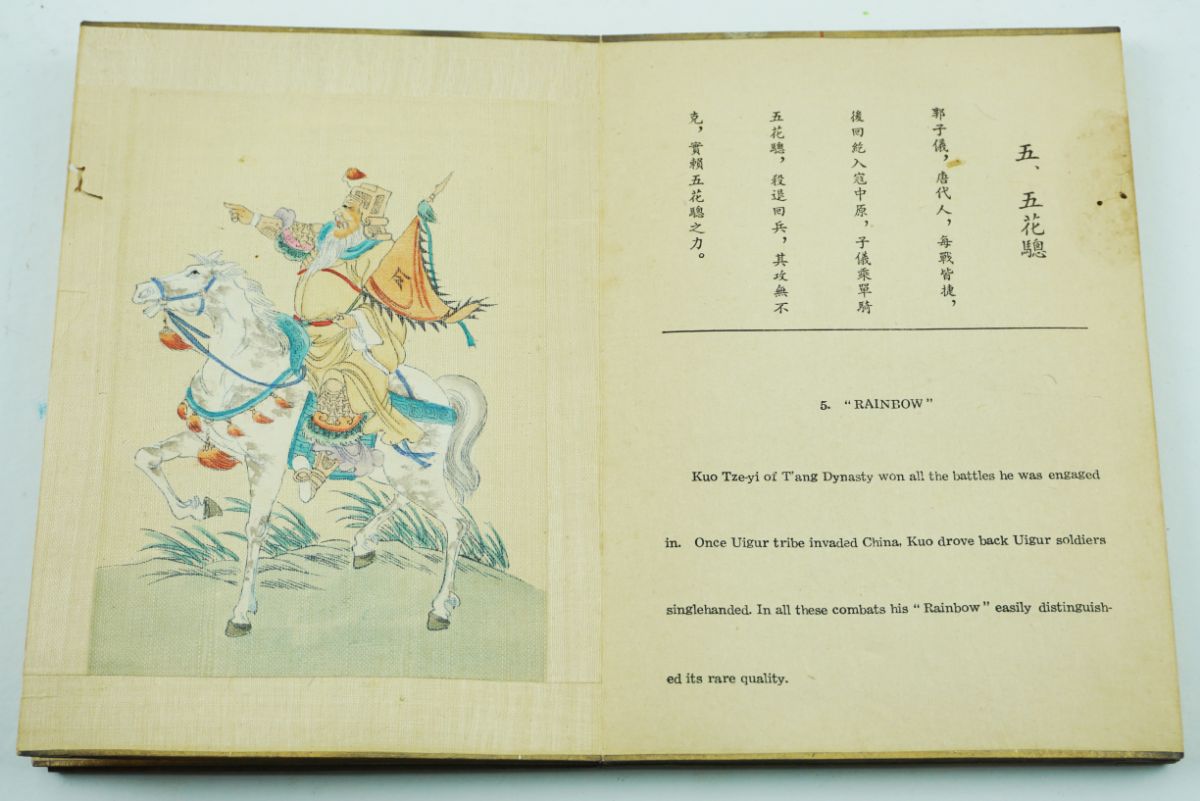 五、五花驄
郭子儀，唐代人，每戰皆捷，
後回紇入寇中原，子儀乘單騎
五花驄，殺退回兵，其攻無不
克，實賴五花驄之力。
5. “RAINBOW”
Kuo Tze-yi of T'ang Dynasty won all the battles he was engaged
in. Once Uigur tribe invaded China, Kuo drove back Uigur soldiers
singlehanded. In all these combats his “Rainbow” easily distinguish-
ed its rare quality.